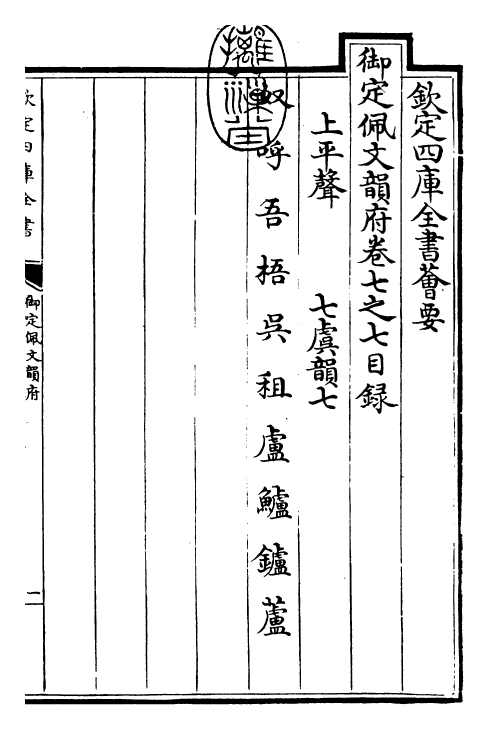 欽定四庫全書薈要
御定佩文韻府卷七之七目録
上平聲　七虞韻七
奴呼吾梧吳租盧鱸鑪蘆
欽定四庫全書
御定佩文韻府
二